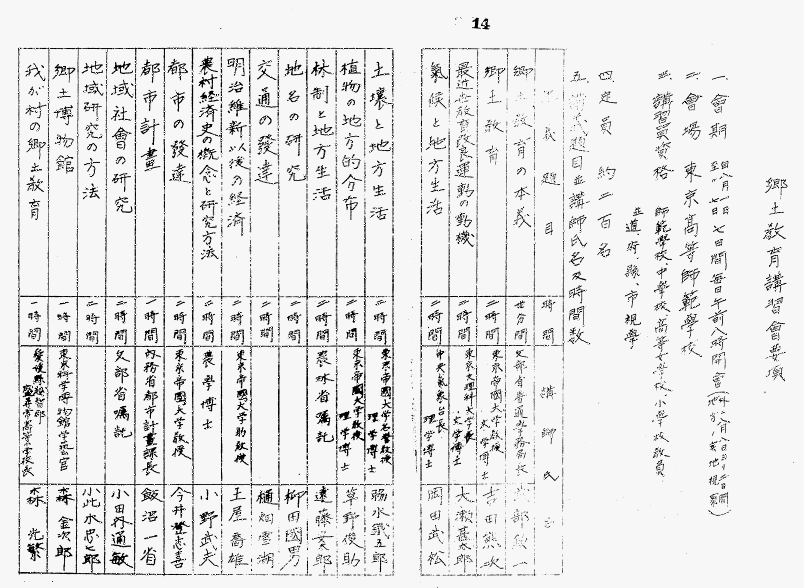 14
郷土教育講習會要項
一、會期 自八月一日 至〃七日 七日間毎日午前八時開會
二、會場 東京高等師範學校
三、講習員資格 師範學校中學校高等女學校小學校教員
並道、府、縣、市視學
四、定員 約二百名
五、講義題目並講師氏名及時間數
講義題目 時間 講師氏名
郷土教育の本義 文部省普通學務局長
郷土教育 二時間 東京帝國大学教授 文学博士 吉田熊次
最近世教育改良運動の動機 二時間 東京文理科大学長 文学博士 大瀬甚太郎
氣候と地方生活 二時間 中央氣象台長 理学博士 岡田武松
土壌と地方生活 二時間 東京帝國大学名誉教授 理学博士 脇水鐵五郎
植物の地方的分布 二時間 東京帝國大学教授 理学博士 草野俊助
林制と地方生活 二時間 農林省嘱託 遠藤
地名の研究 二時間 柳田國男
交通の發達 二時間 樋畑雪湖
明治維新以後の経済 二時間 東京帝國大学助教授 土屋喬雄
農村経済史の概念と研究方法 二時間 農學博士 小野武夫
都市の發達 二時間 東京帝國大学教授 今井登志喜
都市計畫 一時間 内務省都市計畫課長 飯沼一省
地域社會の研究 二時間 文部省嘱託 小田内通敏
地域研究の方法 二時間 小此木忠七郎
郷土博物館 一時間 東京科学博物館学芸官 森金次郎
我が村の郷土教育 一時間 愛媛縣 森光繁